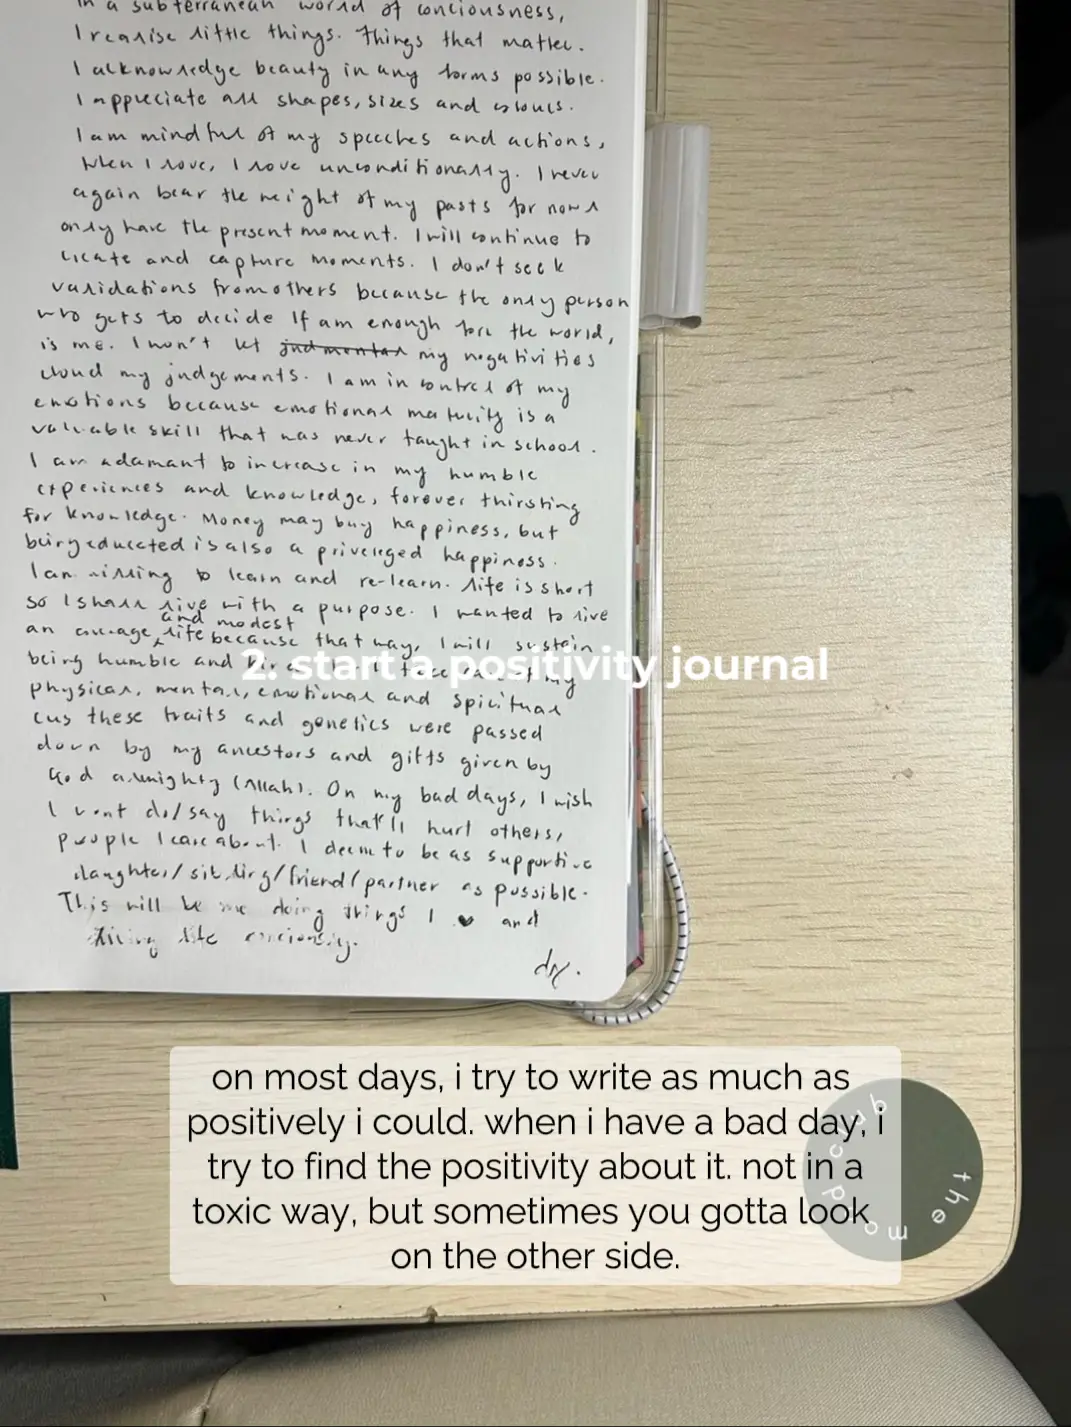 in a subterranean world of conciousness,
I realise little things. Things that matter.
I acknowledge beauty in any forms possible.
I appreciate all shapes, sizes and colours.
I am mindful of my speeches and actions,
When I love, I love unconditionally. I never
again bear the weight of my pasts for now I
only have the present moment. I will continue to
create and capture moments. I don't seek
validations from others because the only person
who gets to decide If am enough for the world,
is me. I won't let my negativities
cloud my judgements. I am in control of my
emotions because emotional maturity is a
valuable skill that was never taught in school.
I am adamant to increase in my humble
experiences and knowledge, forever thirsting
for knowledge. Money may buy happiness, but
being educated is also a priveleged happiness.
I am willing to learn and re-learn. Life is short
so I shall live with a purpose. I wanted to live
an average, and modest life because that way, I will sustain
being humble and my
2. start a positivity journal
physical, mental, emotional and spiritual
cus these traits and genetics were passed
down by my ancestors and gifts given by
God almighty (Allah). On my bad days, I wish
I wont do/say things that'll hurt others,
people I care about. I deem to be as supportive
daughter/sibling/friend/partner as possible.
This will be me doing things I ♥ and
living life conciously.
on most days, i try to write as much as
positively i could. when i have a bad day, i
try to find the positivity about it. not in a
toxic way, but sometimes you gotta look
on the other side.
the mopd club